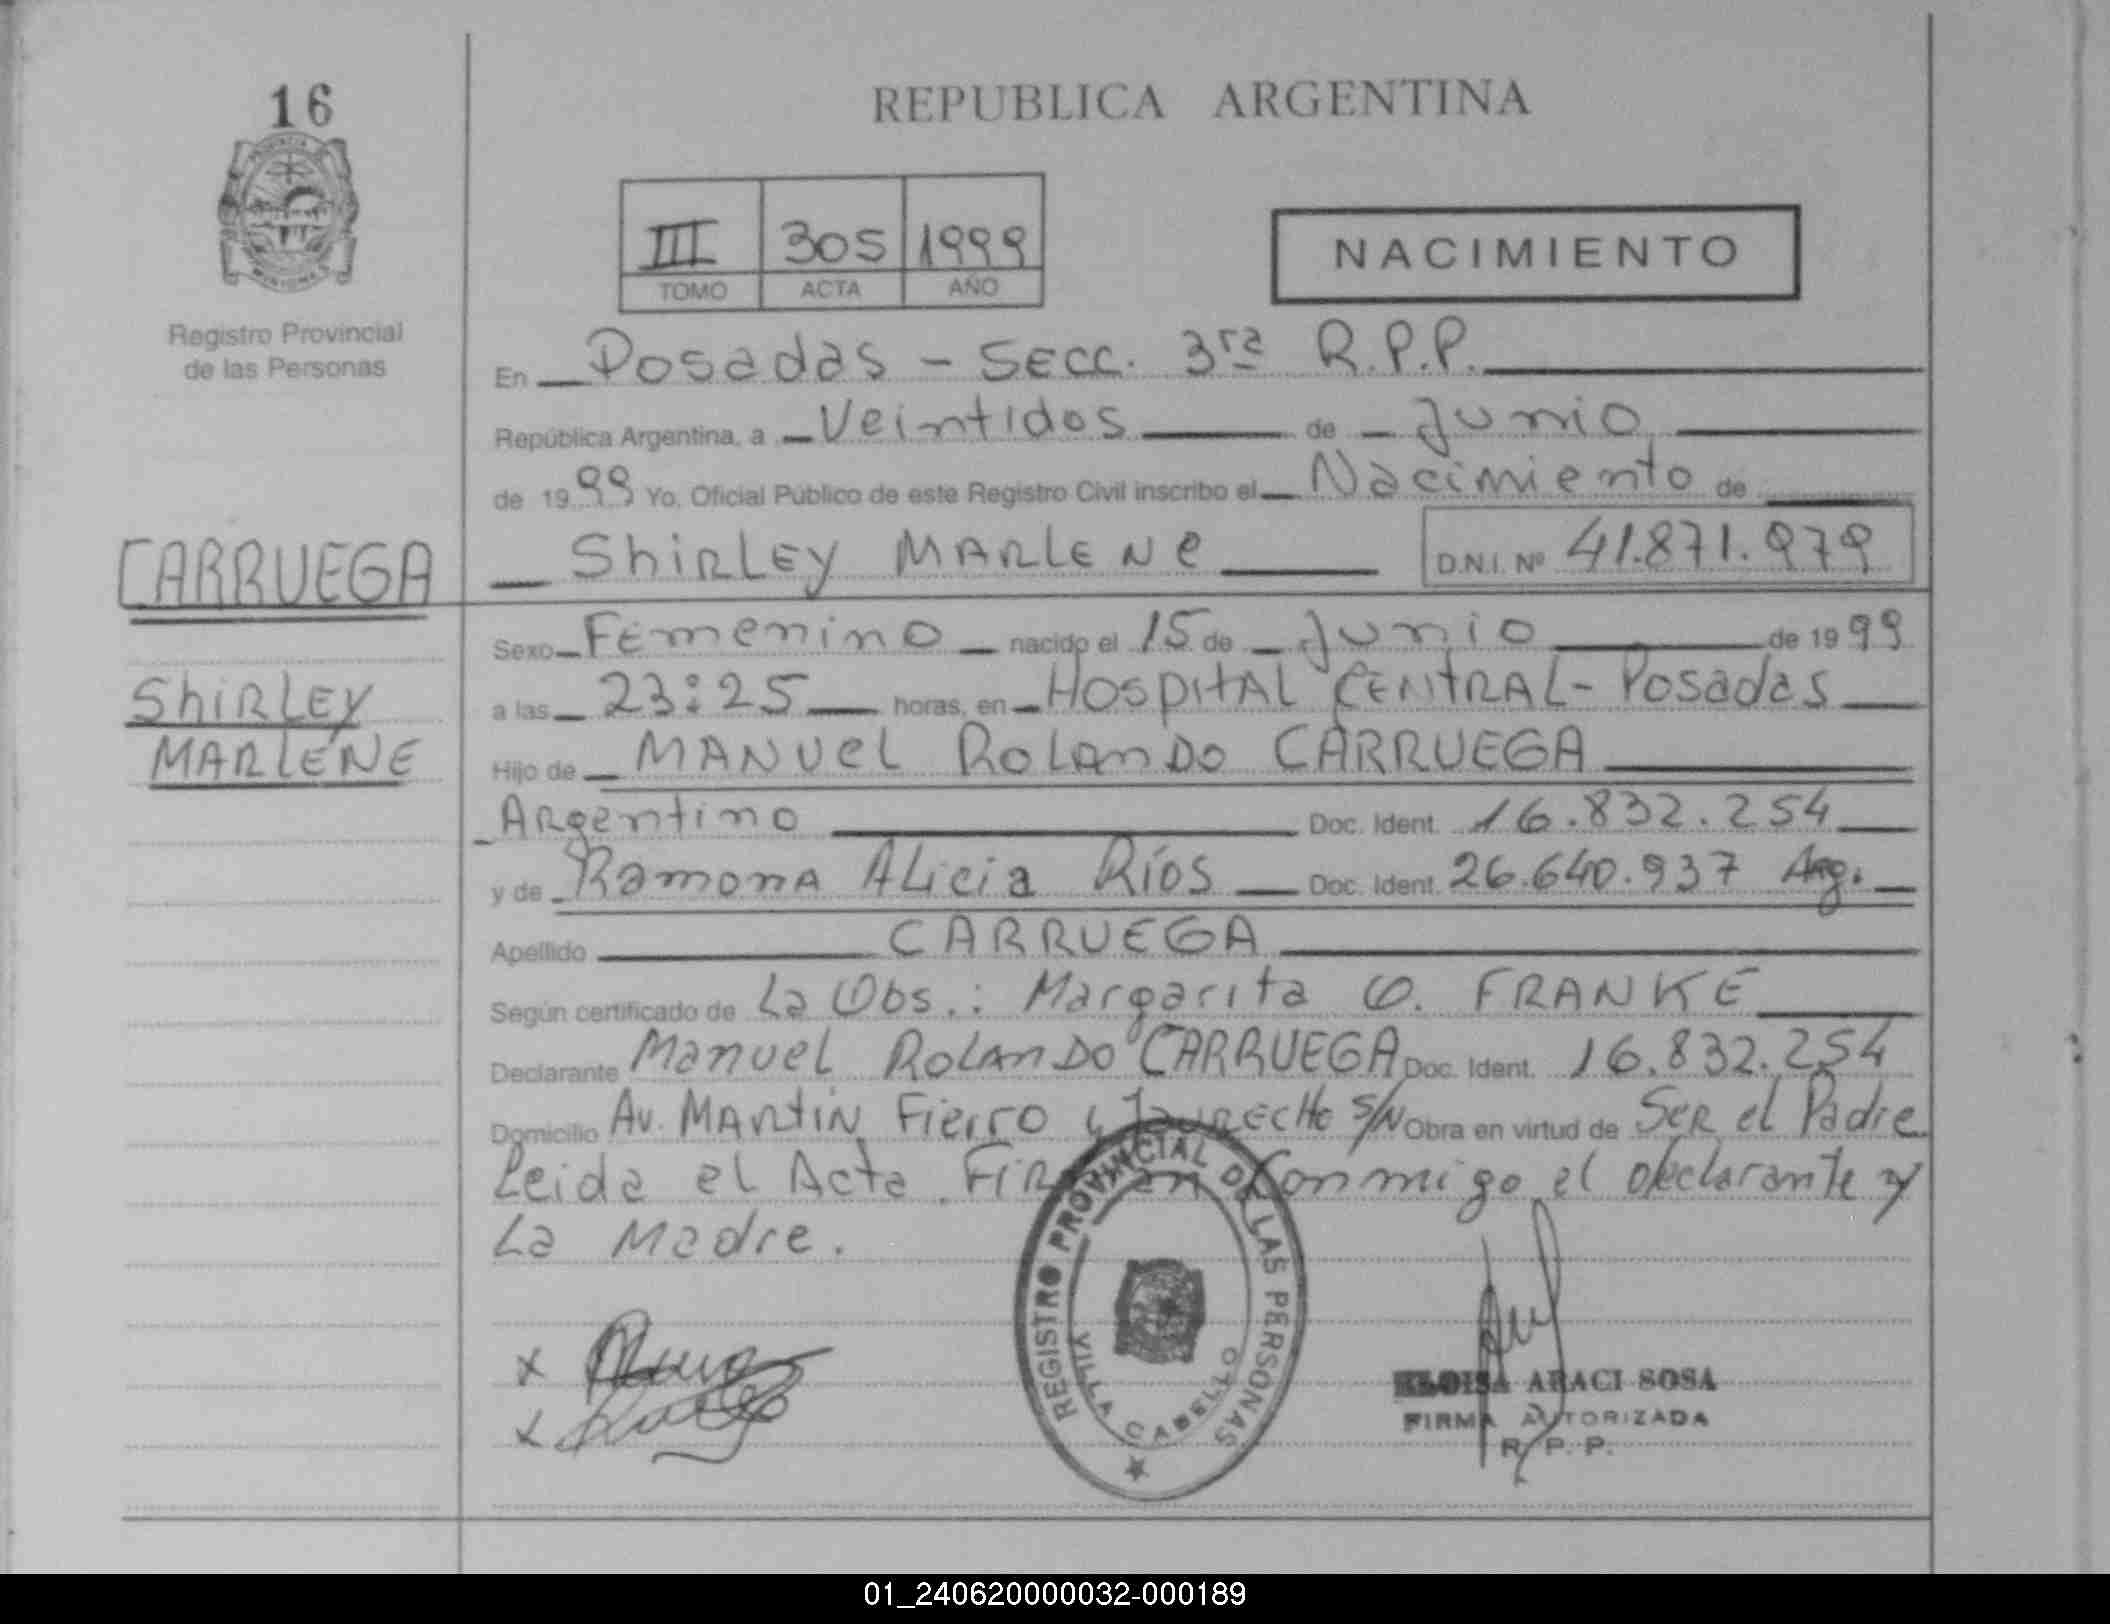 16
REPUBLICA ARGENTINA
III 305 1999
TOMO ACTA AÑO
NACIMIENTO
Registro Provincial
de las Personas
En Posadas - Secc. 3ra R.P.P.
República Argentina, a Veintidos de Junio
de 1999 Yo, Oficial Público de este Registro Civil inscribo el Nacimiento de
CARRUEGA
Shirley MARLENE D.N.I. Nº 41.871.979
Sexo Femenino nacido el 15 de Junio de 1999
Shirley
MARLENE
a las 23:25 horas, en Hospital Central - Posadas
Hijo de MANUEL Rolando CARRUEGA
Argentino Doc. Ident. 16.832.254
y de Ramona Alicia Ríos Doc. Ident. 26.640.937 Arg.
Apellido CARRUEGA
Según certificado de La Obs.: Margarita O. FRANKE
Declarante Manuel Rolando CARRUEGA Doc. Ident. 16.832.254
Domicilio Av. Martin Fierro y S/N Obra en virtud de Ser el Padre
Leida el Acta Firman Conmigo el declarante y
La Madre.
REGISTRO PROVINCIAL DE LAS PERSONAS
VILLA CABELLO
x
x
ELOISA ARACI SOSA
FIRMA AUTORIZADA
R.P.P.
01_240620000032-000189